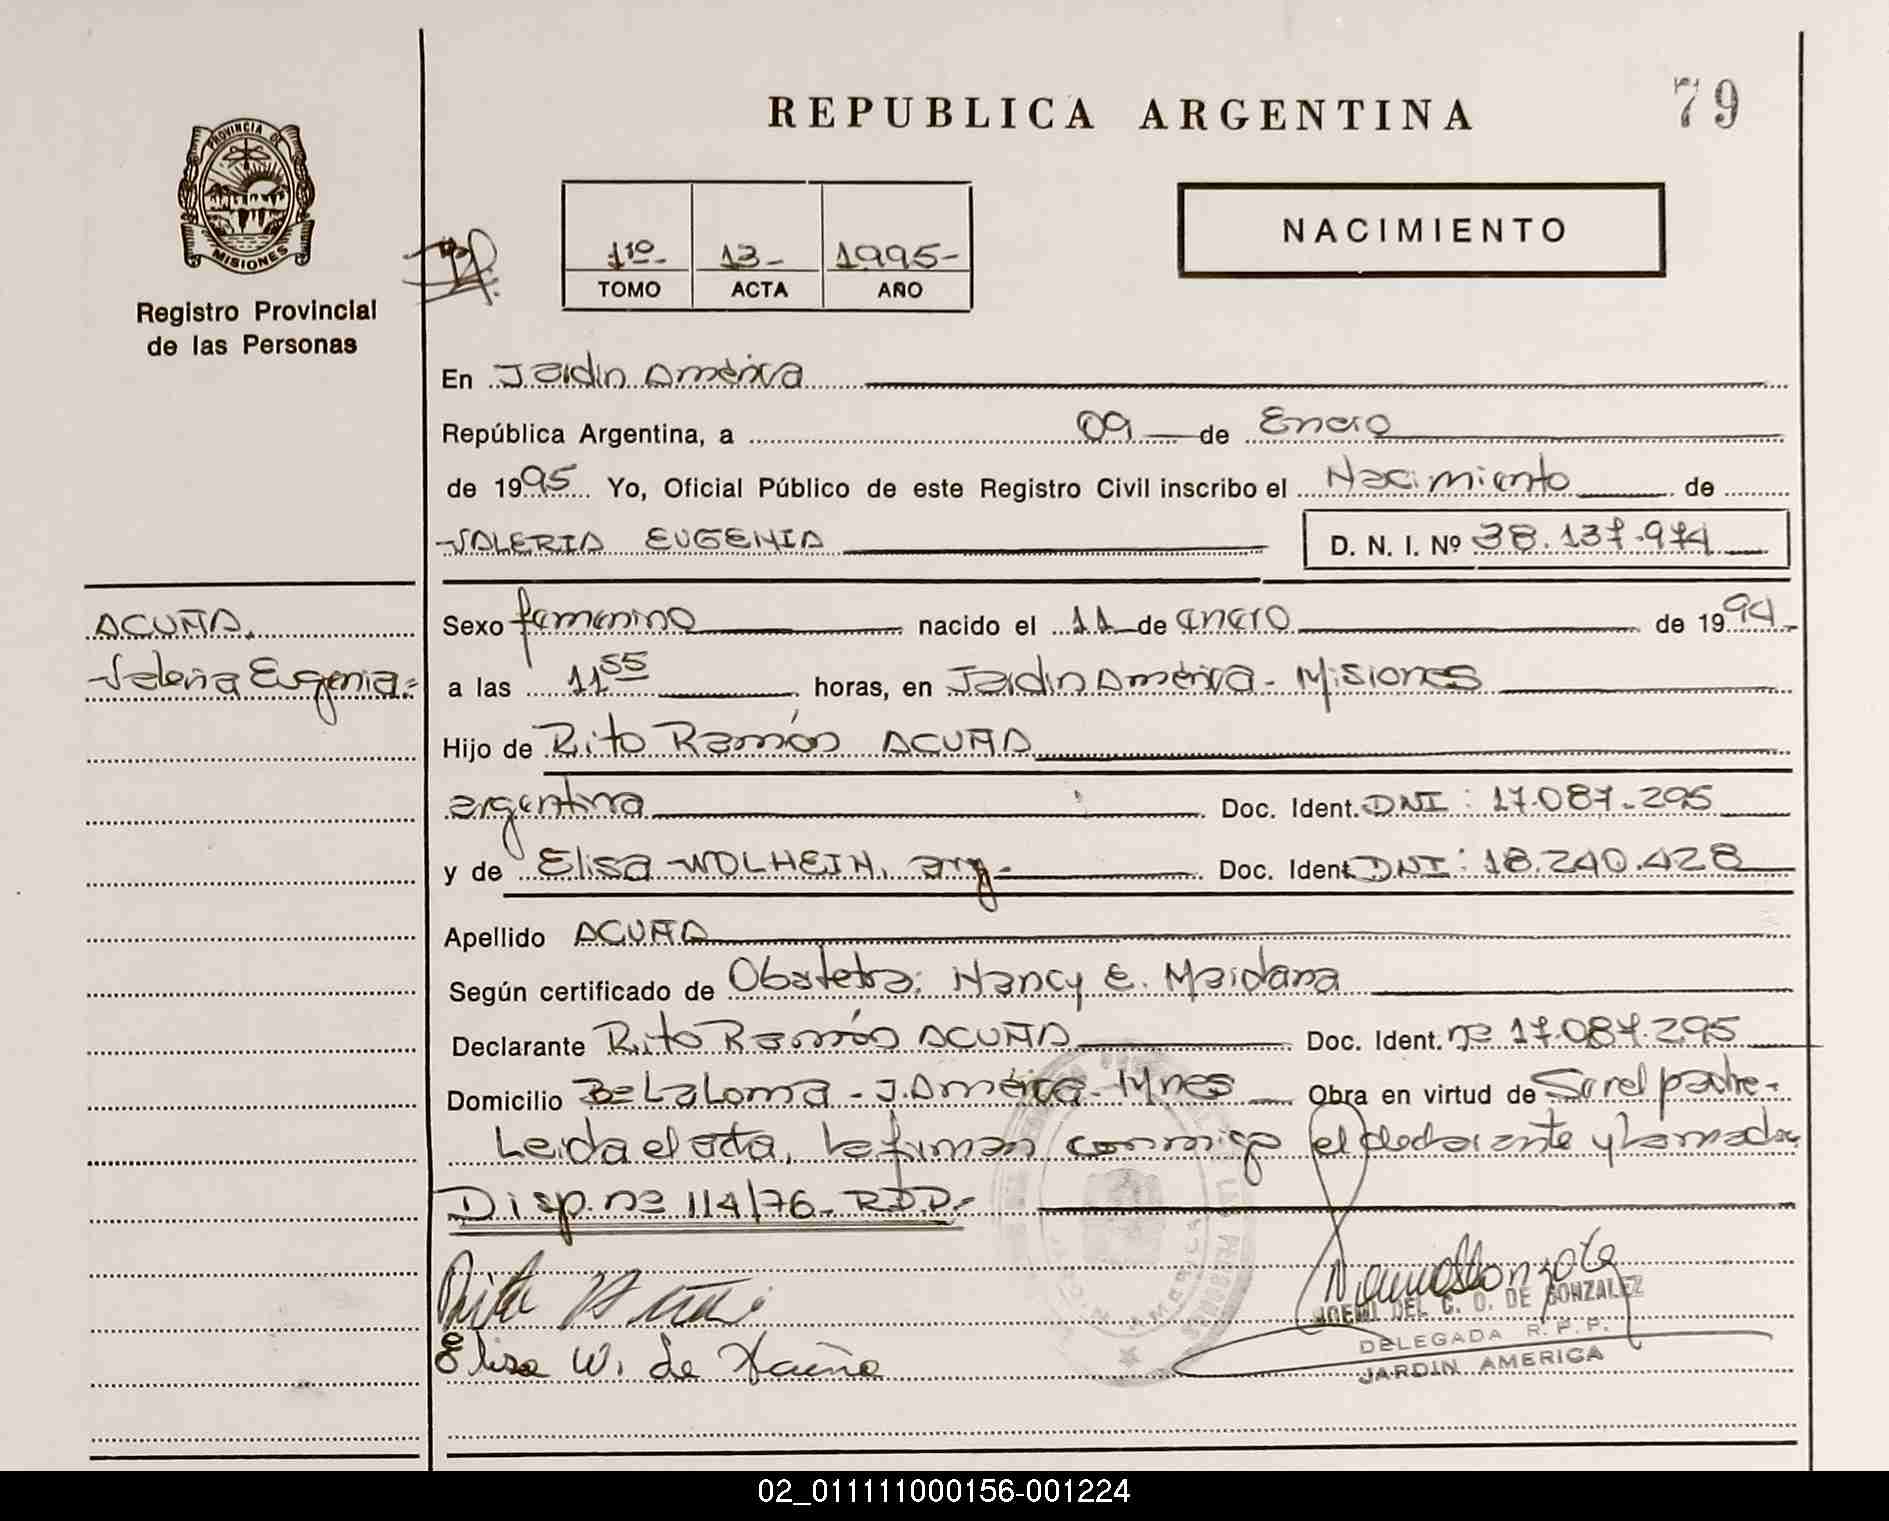 REPUBLICA ARGENTINA
79
PROVINCIA DE
MISIONES
Registro Provincial
de las Personas
1º- 13- 1995-
TOMO ACTA AÑO
NACIMIENTO
En Jardin América
República Argentina, a 09 de Enero
de 1995 Yo, Oficial Público de este Registro Civil inscribo el Nacimiento de
VALERIA EUGENIA D. N. I. Nº 38.137.974
ACUÑA,
Valeria Eugenia.-
Sexo femenino nacido el 11 de enero de 1994-
a las 11 55 horas, en Jardin América - Misiones
Hijo de Rito Ramón ACUÑA
argentina Doc. Ident. DNI: 17.087.295
y de Elisa WOLHEIN, arg.- Doc. Ident DNI: 18.240.428
Apellido ACUÑA
Según certificado de Obstetra: Nancy E. Maidana
Declarante Rito Ramón ACUÑA Doc. Ident. nº 17.087.295
Domicilio Bº La Loma - J. América - Mnes Obra en virtud de Ser el padre.-
Leida el acta, la firman conmigo el declarante y la madre
Disp. nº 114/76- R.P.P.-
Elisa W. de Acuña
NOEMI DEL C. O. DE GONZALEZ
DELEGADA R. P. P.
JARDIN AMERICA
JARDIN AMERICA
02_011111000156-001224